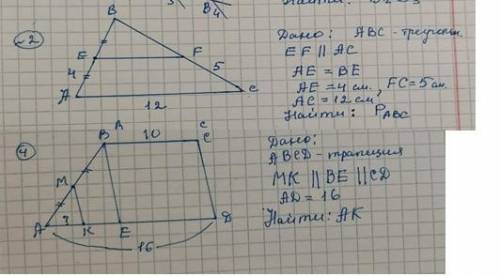 B₄
2
B
E
F
4
5
A
C
12
Дано: ABC - треугольн.
EF || AC
AE = BE
AE = 4 см, FC = 5 см.
AC = 12 см,
Найти: P_ABC
4
B
10
C
M
A
?
K
E
D
16
Дано:
ABCD - трапиция
MK || BE || CD
AD = 16
Найти: AK